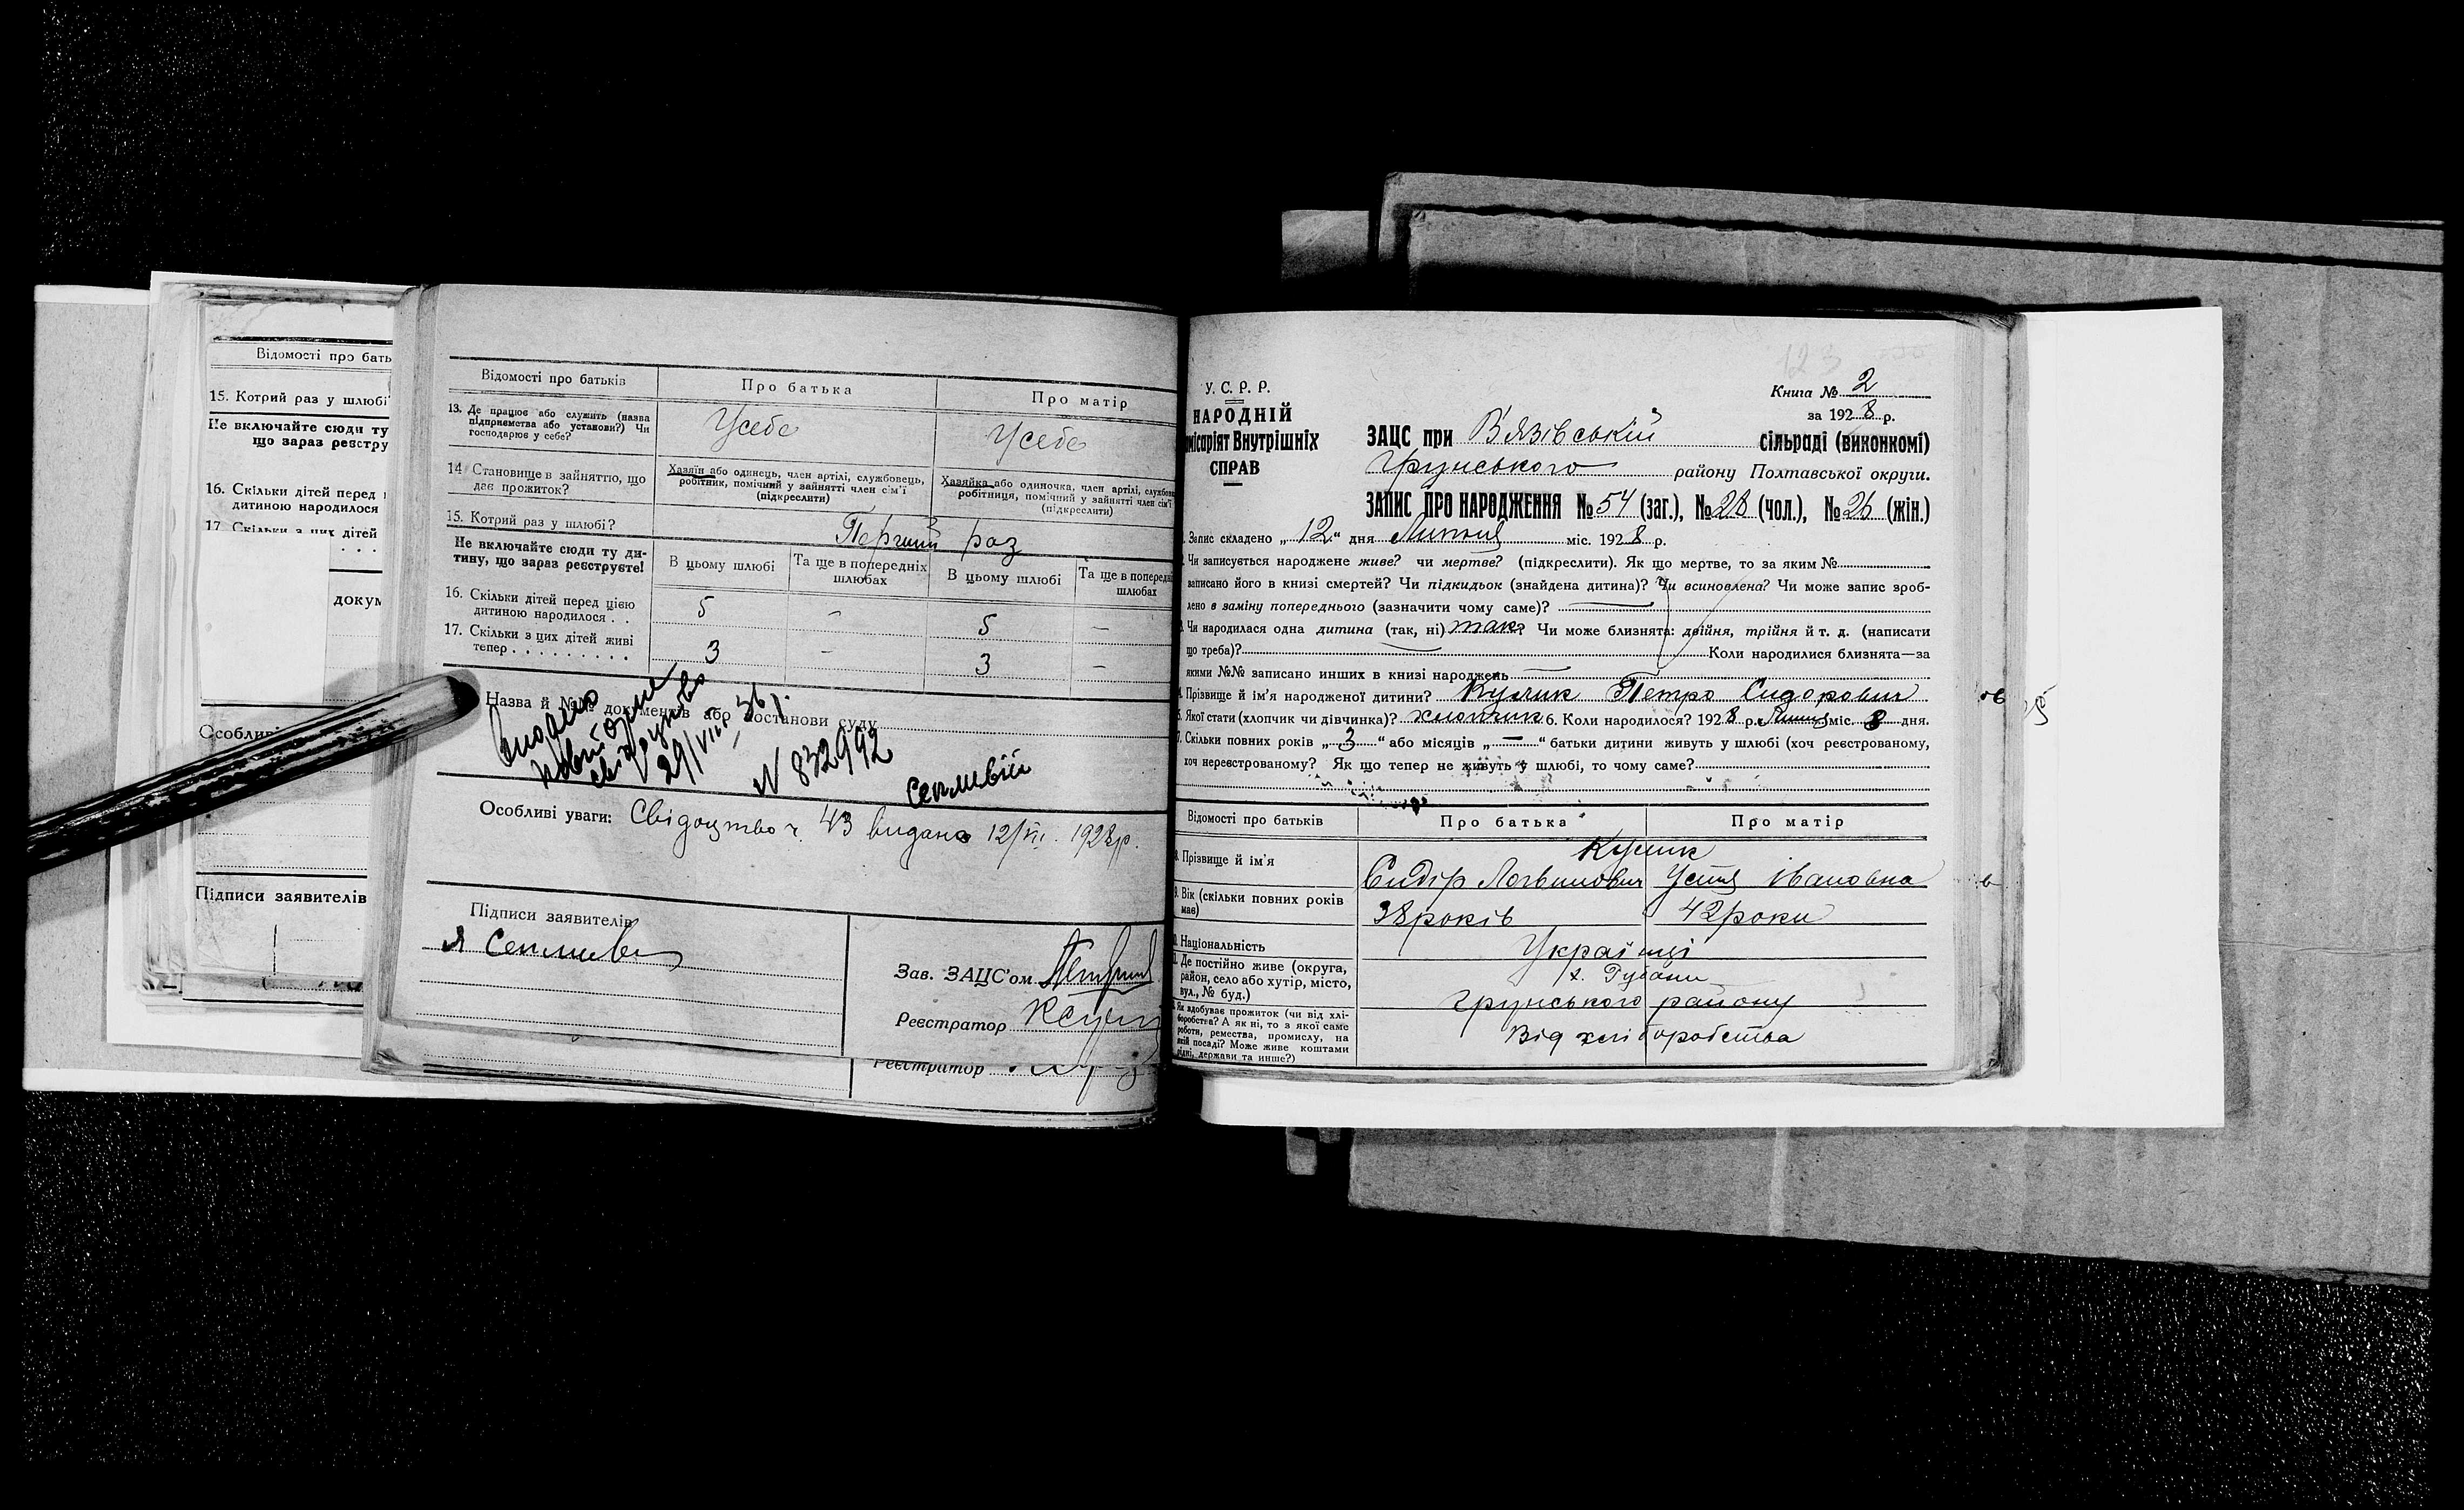 Відомості про бать
15. Котрий раз у шлюбі
Не включайте сюди ту
що зараз реєстру
16. Скільки дітей перед
дитиною народилося
17. Скільки з них дітей
докум
Особливі
Підписи заявителів
Відомості про батьків
Про батька
Про матір
13. Де працює або служить (назва підприємства або установи?) Чи господарює у себе?
Усебе
Усебе
14 Становище в зайняттю, що дає прожиток?
Хазяїн або одинець, член артілі, службовець, робітник, помічний у зайнятті член сім'ї (підкреслити)
Хазяйка або одиночка, член артілі, службов робітниця, помічний у зайнятті член сім'ї (підкреслити)
15. Котрий раз у шлюбі?
Перший раз
Не включайте сюди ту дитину, що зараз реєструєте!
В цьому шлюбі
Та ще в попередніх шлюбах
В цьому шлюбі
Та ще в попередн шлюбах
16. Скільки дітей перед цією дитиною народилося . .
5 - 5 -
17. Скільки з цих дітей живі тепер . . . . . . . . .
3 - 3 -
Назва й №№ документів або постанови суду
29/VIII 36 р.
N 832992
Особливі уваги: Свідоцтво ч. 43 видано 12/VII. 1928р.
Підписи заявителів
Зав. ЗАЦС'ом
Реєстратор
Реєстратор
123
У. С. Р. Р.
НАРОДНІЙ
місаріят Внутрішніх
СПРАВ
Книга № 2
за 1928 р.
ЗАЦС при В'язівській сільраді (виконкомі)
Грунського району Полтавської округи.
ЗАПИС ПРО НАРОДЖЕННЯ № 54 (заг.), № 28 (чол.), № 26 (жін.)
Запис складено „12“ дня Липня міс. 1928 р.
Чи записується народжене живе? чи мертве? (підкреслити). Як що мертве, то за яким №
записано його в книзі смертей? Чи підкидьок (знайдена дитина)? Чи всиновлена? Чи може запис зроб-
лено в заміну попереднього (зазначити чому саме)?
Чи народилася одна дитина (так, ні) так? Чи може близнята: двійня, трійня й т. д. (написати
що треба)? Коли народилися близнята—за
якими №№ записано инших в книзі народжень
Прізвище й ім'я народженої дитини? Кулик Петро Сидорович
Якої стати (хлопчик чи дівчинка)? хлопчик 6. Коли народилося? 1928 р. Липня міс. 8 дня.
Скільки повних років „3“ або місяців „—“ батьки дитини живуть у шлюбі (хоч реєстрованому,
хоч нереєстрованому? Як що тепер не живуть у шлюбі, то чому саме?
Відомості про батьків
Про батька
Про матір
8. Прізвище й ім'я
Кулик
Сидір Логвинович
Устя Івановна
9. Вік (скільки повних років має)
38 років
42 роки
Національність
Українці
Де постійно живе (округа, район, село або хутір, місто, вул., № буд.)
х. Губани
Грунського району
Як здобуває прожиток (чи від хліборобства? А як ні, то з якої саме роботи, ремества, промислу, на якій посаді? Може живе коштами рідні, держави та инше?)
Від хліборобства